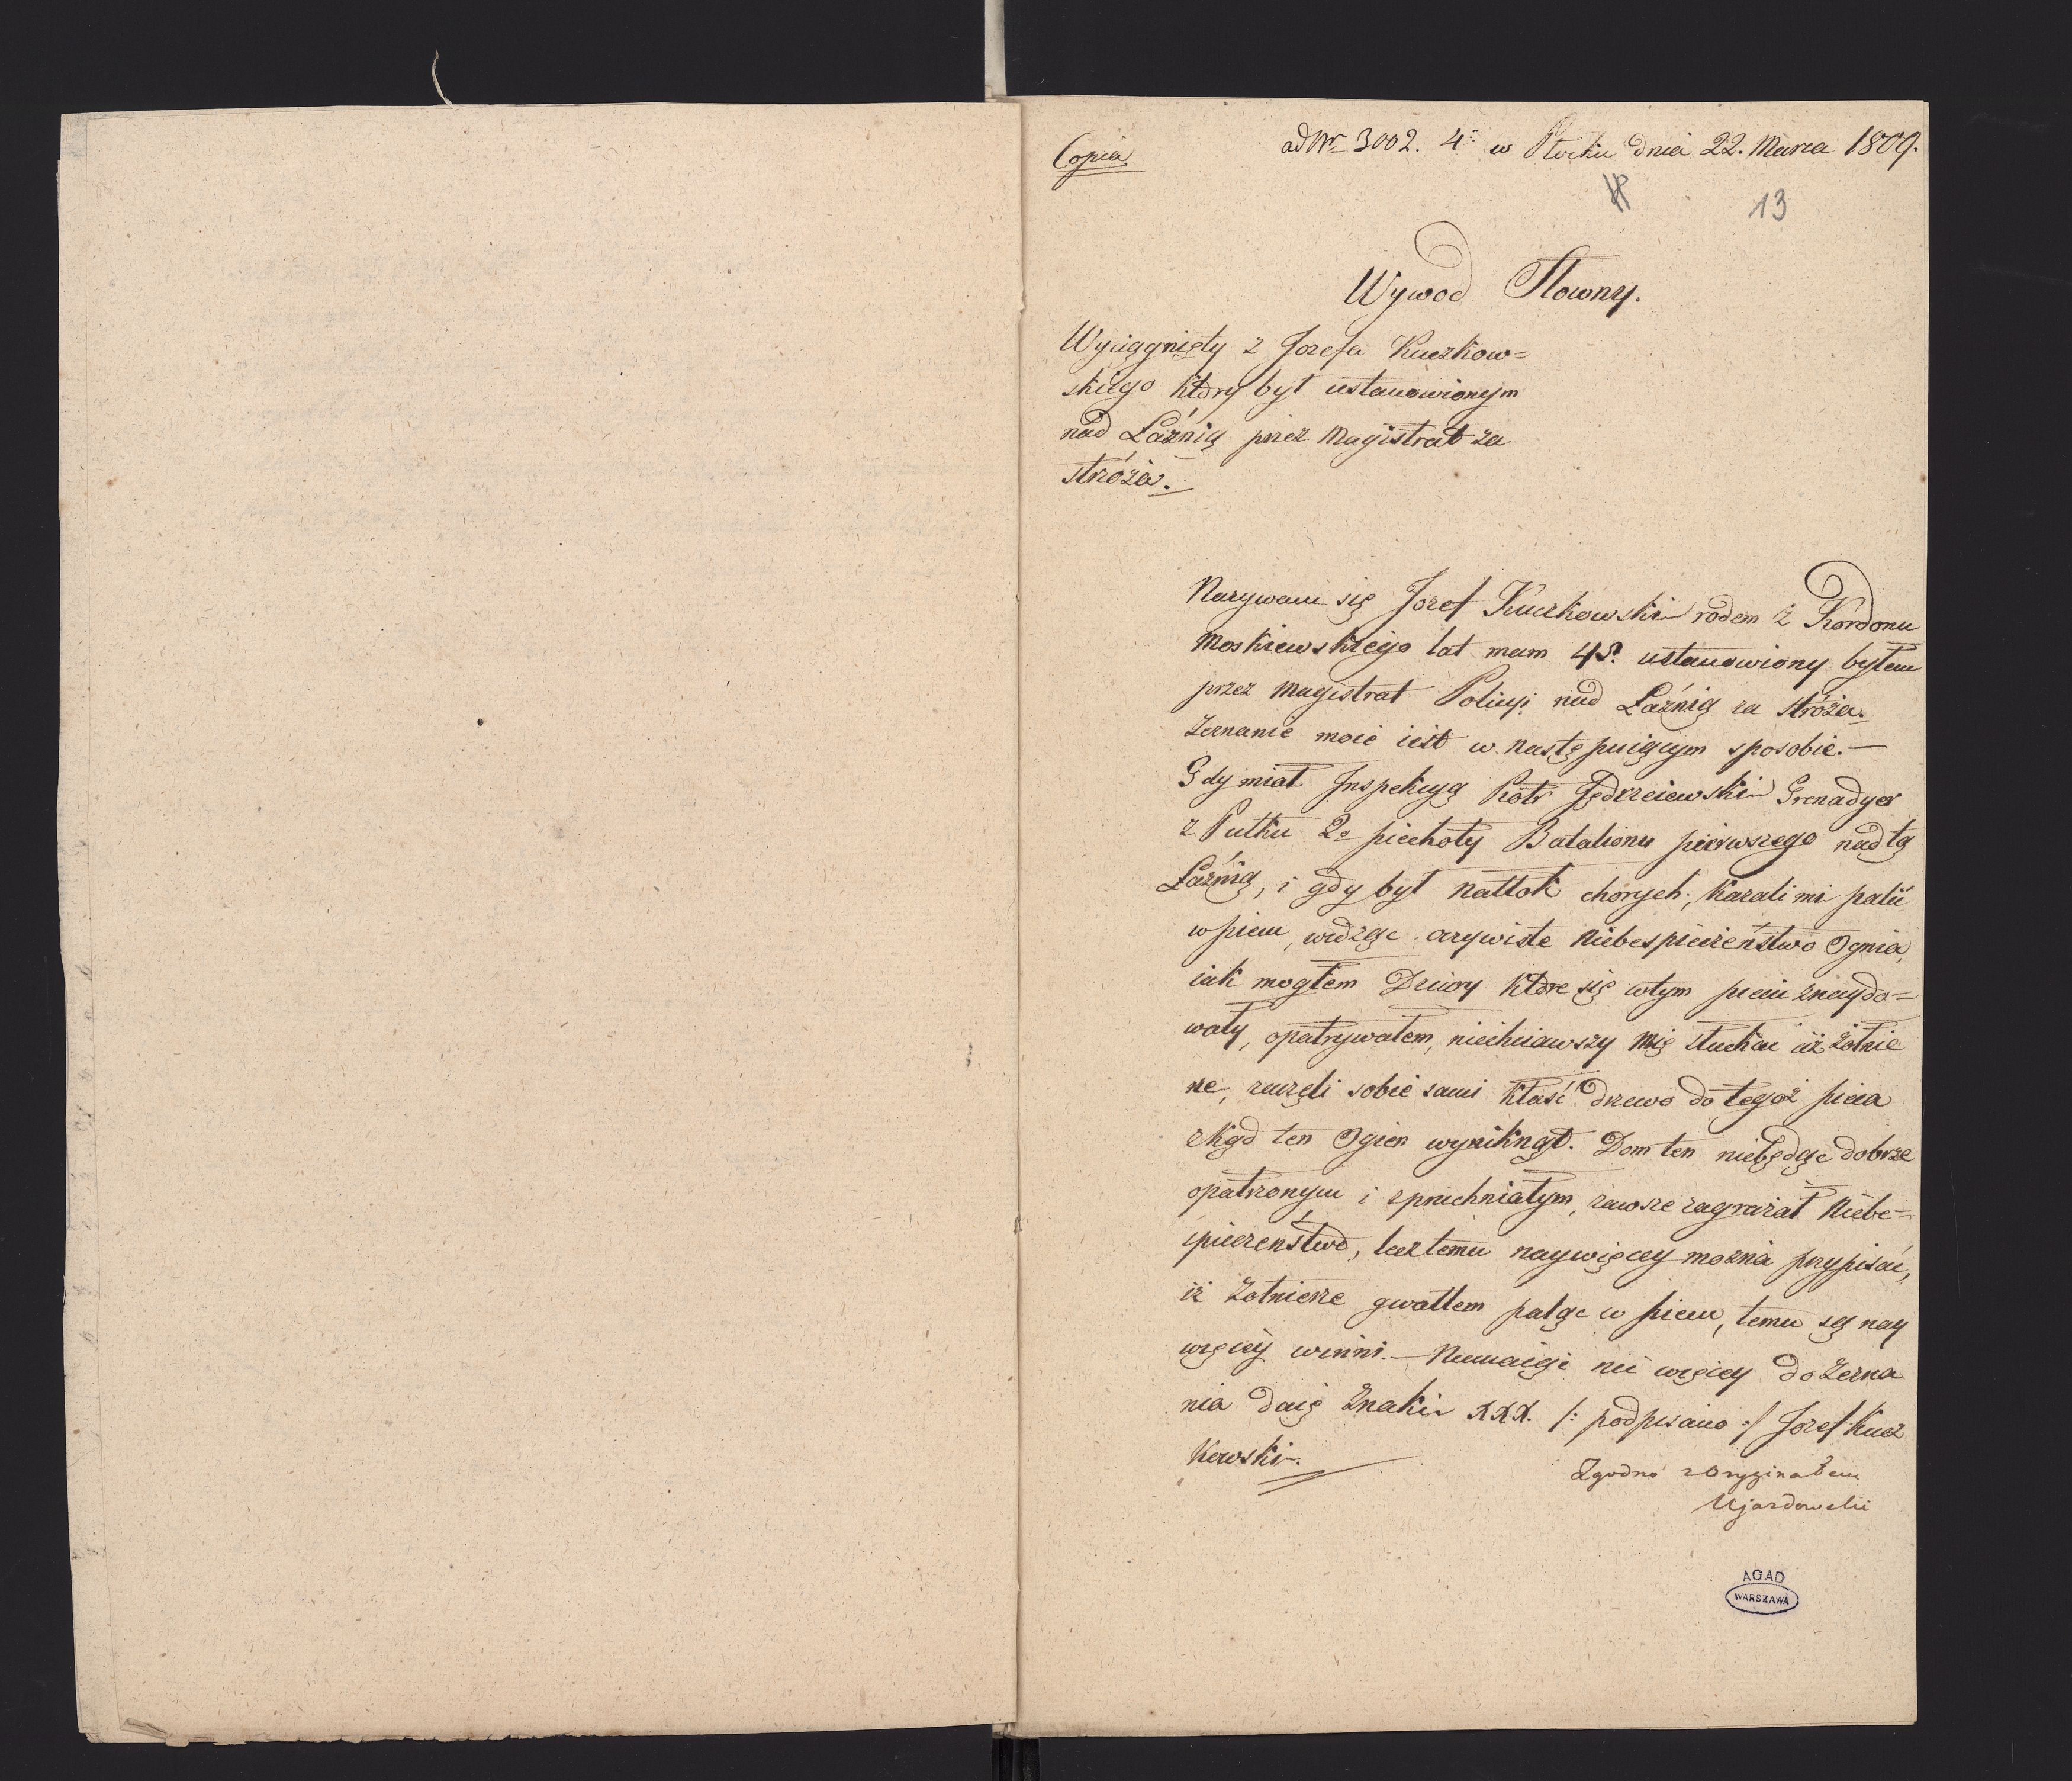 Copia
ad Nr 3002. 4: w Płocku dnia 22. Marca 1809.
13
Wywod Słowny.
Wyciągnięty z Jozefa Kuczkow=
skiego który był ustanowionym
nad Łaźnią przez Magistrat za
stróża.
Nazywam się Jozef Kuczkowski rodem z Kordonu
Moskiewskiego lat mam 48. ustanowiony byłem
przez Magistrat Policyi nad Łaźnią za stróża.
Zeznanie moie iest w następuiącym sposobie.—
Gdy miał Inspekcyą Piotr Jędrzeiewski Grenadyer
z Pułku 2o piechoty Batalionu pierwszego nad tą
Łaźnią, i gdy był nattok chorych, kazali mi palić
w piecu, widząc oczywiste niebespieczeństwo Ognia,
iak mogłem Dziury które się w tym piecu znaydo=
wały, opatrywałem, niechciawszy mię słuchać iż żołnie
rze, zaczęli sobie sami kłaść drzewo do tegoż pieca
zkąd ten Ogien wyniknął. Dom ten niebędąc dobrze
opatrzonym i spruchniałym, zawsze zagrażał Niebe=
spieczeństwo, lecz temu naywięcey można przypisać,
iż żołnierze gwałtem paląc w piecu, temu są nay
więcéy winni.— Niemaiąc nic więcey do Zezna
nia daię Znaki XXX. /: podpisano :/ Jozef Kucz
kowski.
Zgodno z Oryginałem
Ujazdowski
AGAD
WARSZAWA